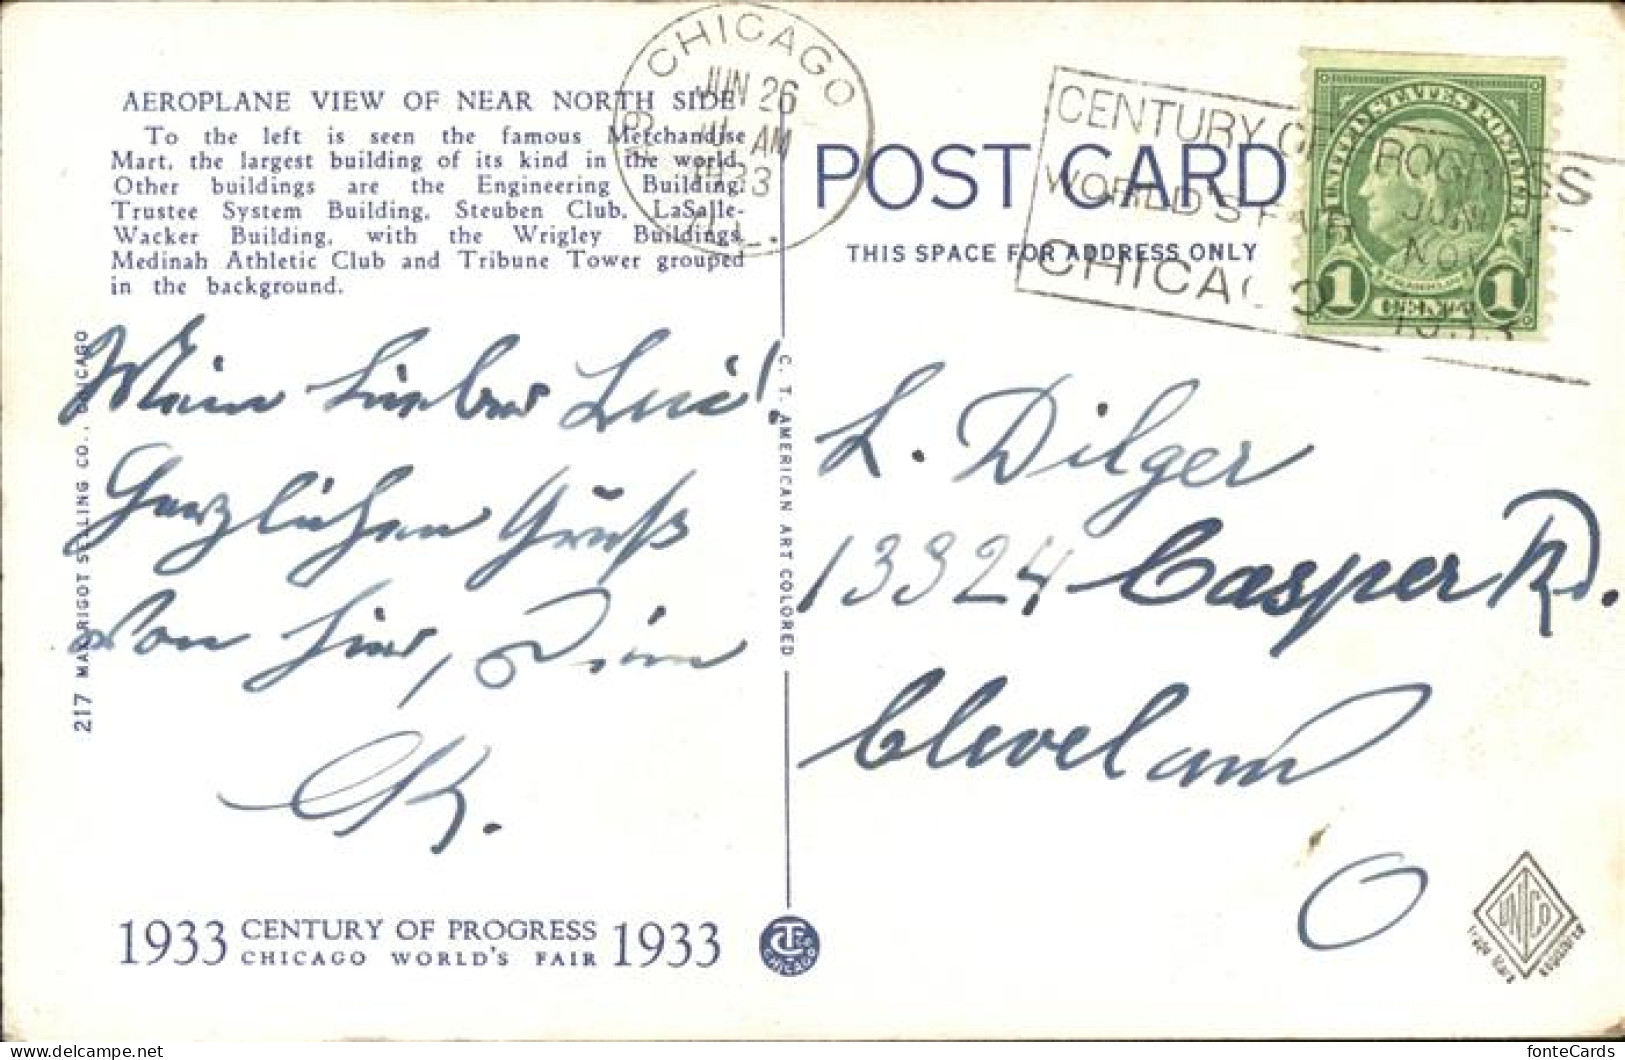 AEROPLANE VIEW OF NEAR NORTH SIDE
To the left is seen the famous Merchandise
Mart, the largest building of its kind in the world.
Other buildings are the Engineering Building,
Trustee System Building, Steuben Club, LaSalle-
Wacker Building, with the Wrigley Buildings,
Medinah Athletic Club and Tribune Tower grouped
in the background.
Mein lieber Luis!
Herzlichen Gruß
von hier, Dein
K.
1933 CENTURY OF PROGRESS 1933
CHICAGO WORLD'S FAIR
217 MAX RIGOT SELLING CO., CHICAGO
C. T. AMERICAN ART COLORED
CHICAGO
JUN 26
AM
1933
ILL.
CENTURY OF PROGRESS
WORLD'S FAIR JUN 1
NOV 1
CHICAGO 1933
UNITED STATES POSTAGE
FRANKLIN
1 CENT 1
POST CARD
THIS SPACE FOR ADDRESS ONLY
L. Dilger
13324 Casper Rd.
Cleveland
O
CT CO
CHICAGO
UNICO
Trade Mark Registered
fonteCards